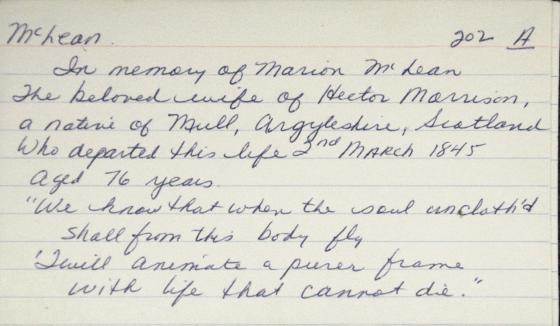 McLean. 202 A
In memory of Marion McLean
The beloved wife of Hector Morrison,
a native of Mull, Argyleshire, Scotland
Who departed this life 2nd March 1845
Aged 76 years.
"We know that when the soul uncloth'd
shall from this body fly
'Twill animate a purer frame
with life that cannot die."